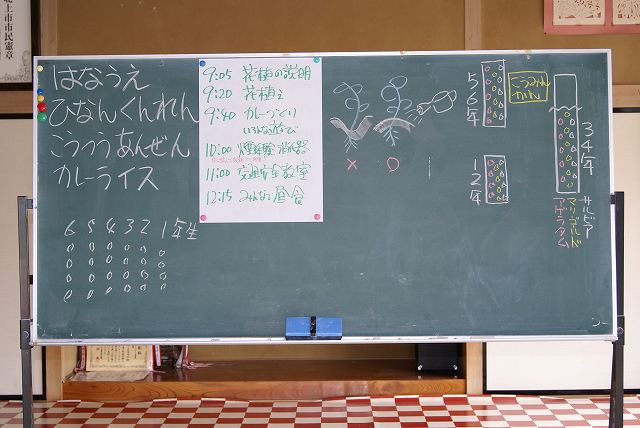 北上市市民憲章
はなうえ
ひなんくんれん
こうつうあんぜん
カレーライス
6 5 4 3 2 1年生
9:05 花植の説明
9:20 花植え
9:40 カレーづくり
いろんな遊び
10:00 煙体験 消火器
11:00 交通安全教室
12:15 みんなで昼食
×
○
56年
こうみんかん
12年
34年
サルビア
マリーゴールド
アゲラタム